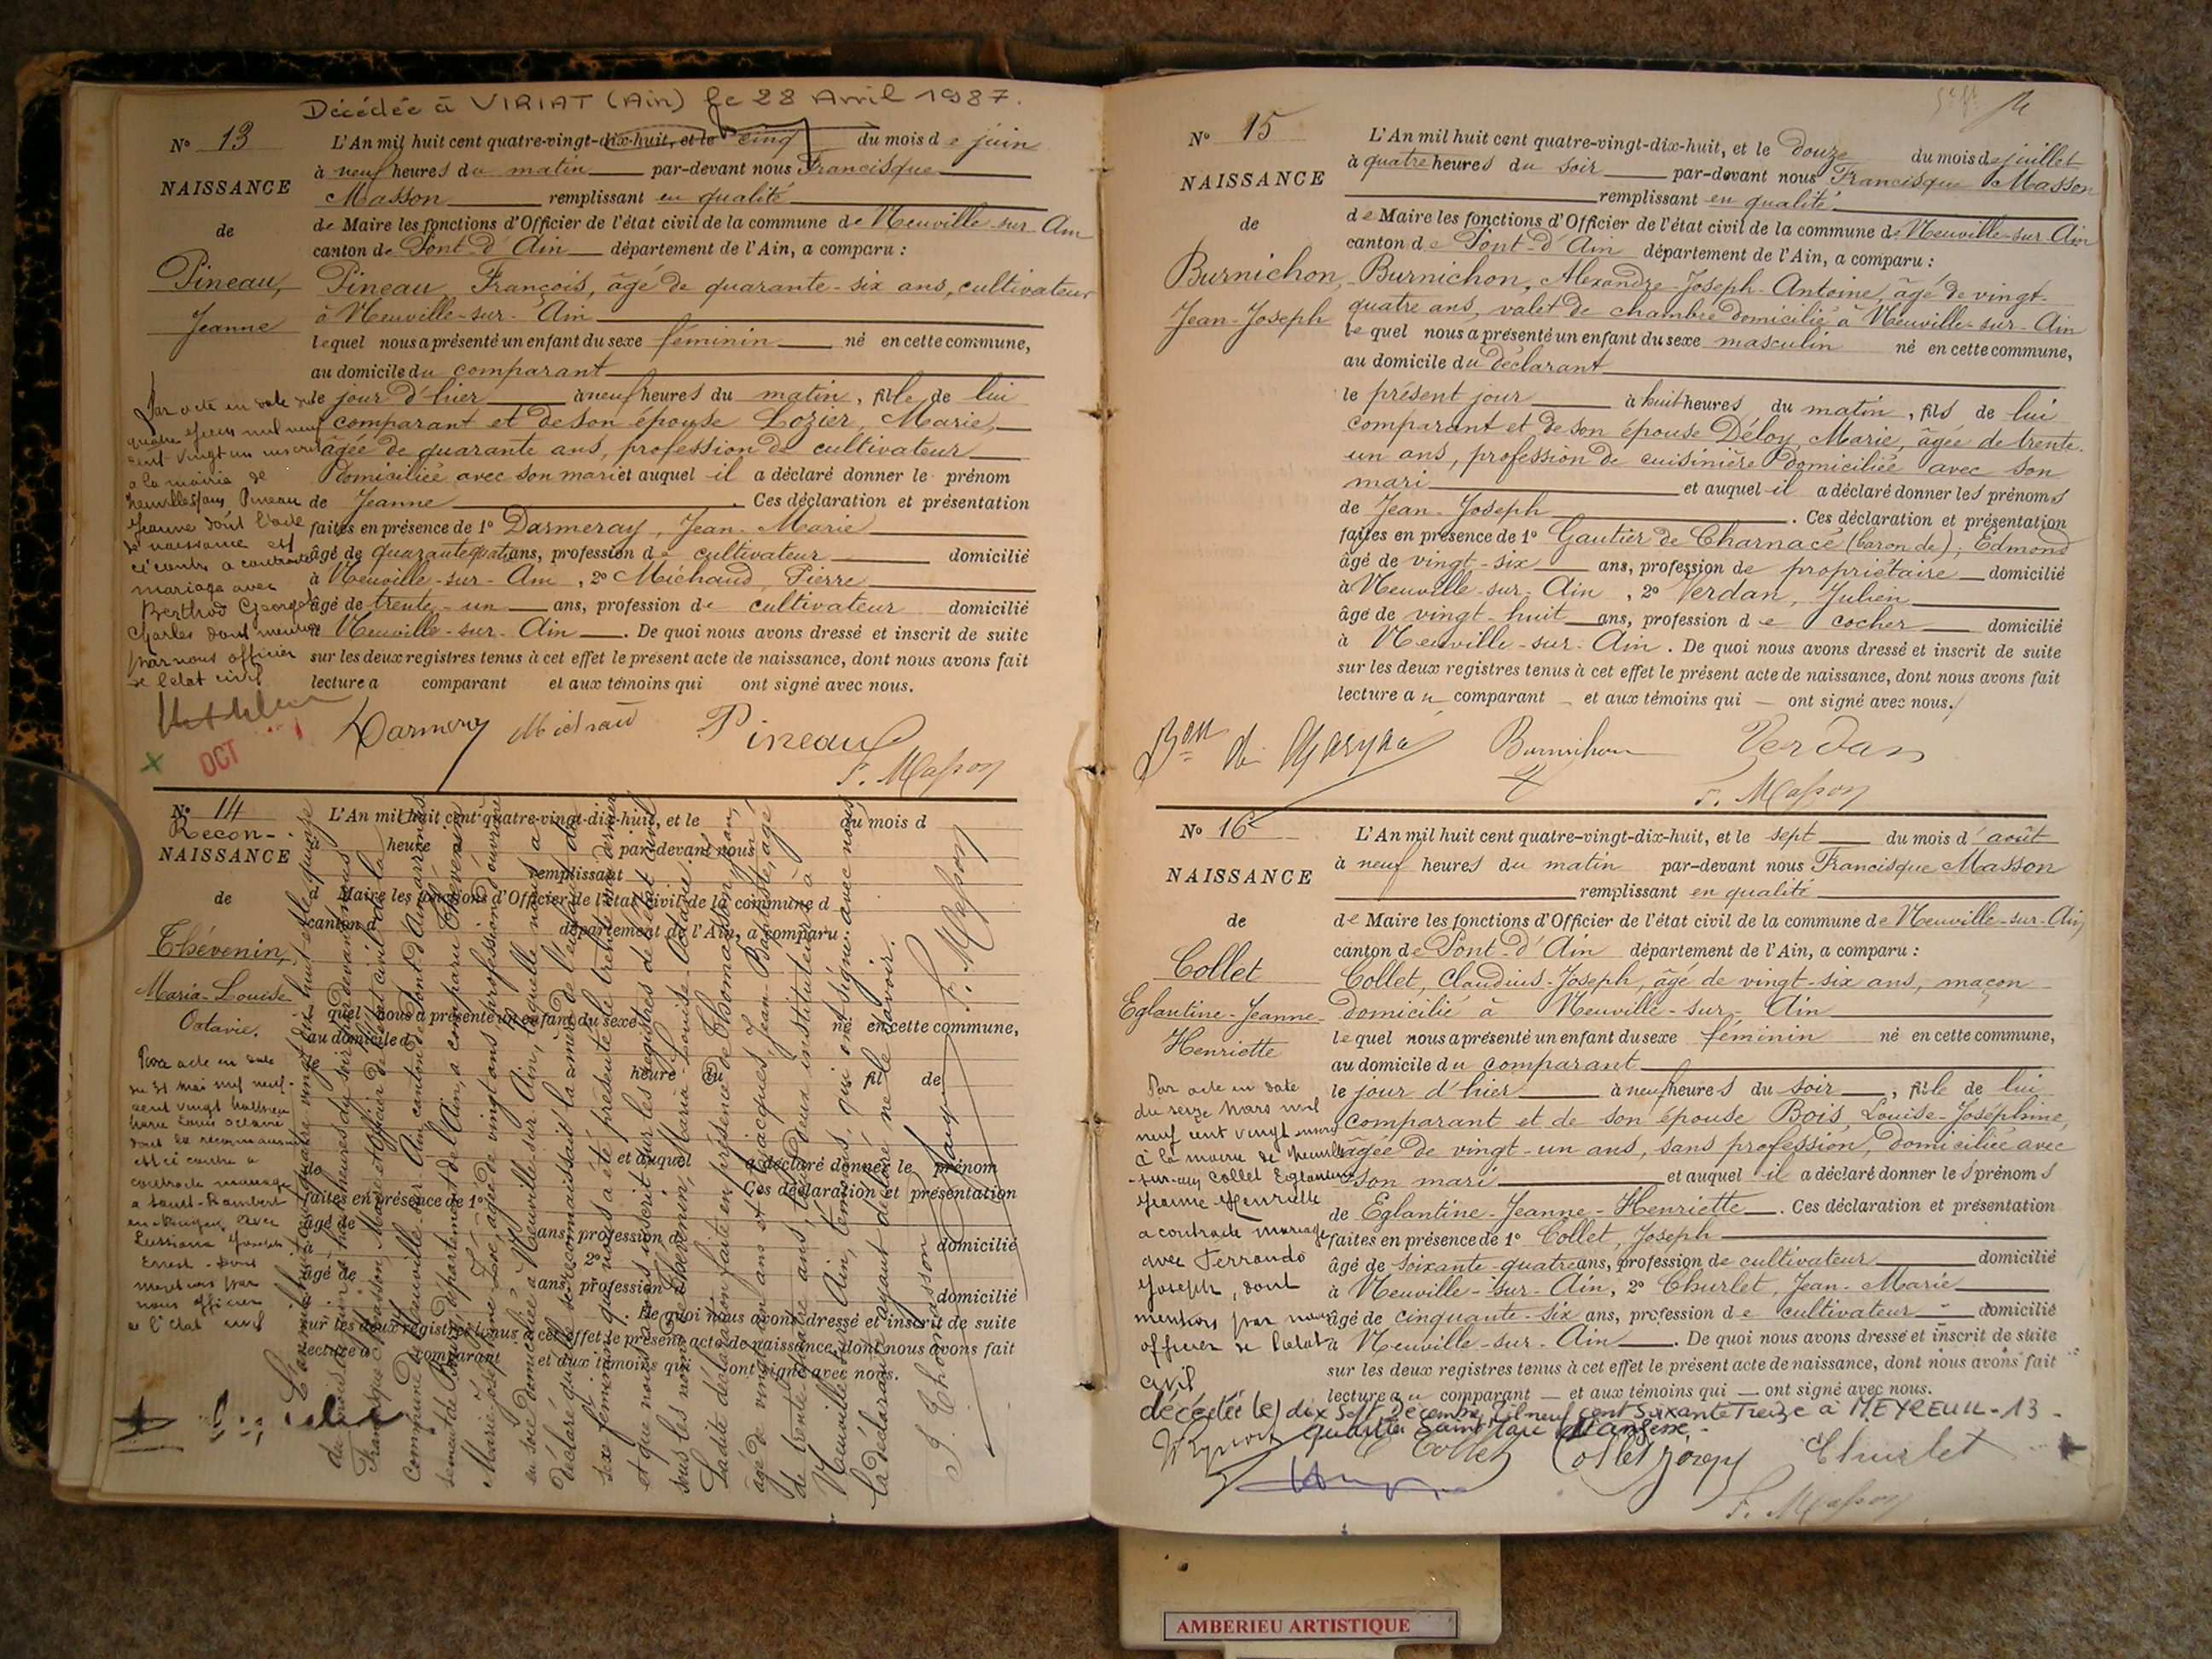 Décédée à VIRIAT (Ain) le 28 Avril 1987.
N° 13
NAISSANCE
de
Pineau,
Jeanne
L'An mil huit cent quatre-vingt-dix-huit, et le cinq du mois de juin
à neuf heures du matin par-devant nous Francisque
Masson remplissant en qualité
de Maire les fonctions d'Officier de l'état civil de la commune de Neuville-sur-Ain
canton de Pont-d'Ain département de l'Ain, a comparu :
Pineau, François, âgé de quarante-six ans, cultivateur
à Neuville-sur-Ain
lequel nous a présenté un enfant du sexe féminin né en cette commune,
au domicile du comparant
le jour d'hier à neuf heures du matin, fille de lui
comparant et de son épouse Lozier, Marie,
âgée de quarante ans, profession de cultivateur
domiciliée avec son mari et auquel il a déclaré donner le prénom
de Jeanne. Ces déclaration et présentation
faites en présence de 1° Darmeray, Jean-Marie
âgé de quarante quatre ans, profession de cultivateur domicilié
à Neuville-sur-Ain, 2° Michaud, Pierre
âgé de trente-un ans, profession de cultivateur domicilié
à Neuville-sur-Ain. De quoi nous avons dressé et inscrit de suite
sur les deux registres tenus à cet effet le présent acte de naissance, dont nous avons fait
lecture a comparant et aux témoins qui ont signé avec nous.
Par acte en date du
quatre mil neuf
cent vingt un inscrit
a la mairie de
Pineau
Jeanne dont l'acte
de naissance est
ci contre a contracté
mariage avec
Berthod Georges
Charles dont mention
par nous officier
de l'etat civil
Darmery Michaud Pineau
F. Masson
OCT
N° 14
Recon-
NAISSANCE
de
Thévenin,
Maria-Louise
Octavie.
L'An mil huit cent quatre-vingt-dix-huit, et le du mois d
heure par-devant nous
remplissant
d Maire les fonctions d'Officier de l'état civil de la commune d
canton d département de l'Ain, a comparu
quel nous a présenté un enfant du sexe né en cette commune,
au domicile d
le heure du fil de
et auquel a déclaré donner le prénom
de Ces déclaration et présentation
faites en présence de 1°
âgé de ans, profession d domicilié
à 2°
âgé de ans, profession d domicilié
à . De quoi nous avons dressé et inscrit de suite
sur les deux registres tenus à cet effet le présent acte de naissance, dont nous avons fait
lecture a comparant et aux témoins qui ont signé avec nous.
Par acte en date
du 31 mai mil neuf
cent vingt
Marie Louise Octavie
dont la reconnaissance
est ci contre a
contracté mariage
a Saint-Rambert
avec
Joseph
Ernest dont
mention par
nous officier
de l'Etat civil
L'an mil huit cent quatre-vingt-dix-huit et le quinze
du mois de à heures du soir par-devant nous
Francisque Masson, Maire et Officier de l'état civil de la
commune de Neuville-sur-Ain, canton de Pont-d'Ain, arrondis-
sement de Bourg, département de l'Ain, a comparu Thévenin
Marie-Joséphine-Zoé, âgée de vingt ans, profession d'ouvrière
en soie domiciliée à Neuville-sur-Ain, laquelle nous a
déclaré qu'elle se reconnaissait la mère de l'enfant du
sexe féminin qui nous a été présenté le trente mai dernier
et que nous avons inscrit sur les registres de l'état civil
sous les noms de Thévenin, Maria-Louise-Octavie.
Ladite déclaration faite en présence de Thomasson, Jean,
âgé de vingt-cinq ans et Jacquet, Jean-Baptiste, âgé
de trente-quatre ans, tous deux instituteurs à
Neuville-sur-Ain, témoins, qui ont signé avec nous
la déclarante ayant déclaré ne le savoir.
J. Thomasson Jacquet F. Masson
N° 15
NAISSANCE
de
Burnichon,
Jean-Joseph
L'An mil huit cent quatre-vingt-dix-huit, et le douze du mois de juillet
à quatre heures du soir par-devant nous Francisque Masson
remplissant en qualité
de Maire les fonctions d'Officier de l'état civil de la commune de Neuville-sur-Ain
canton de Pont-d'Ain département de l'Ain, a comparu :
Burnichon, Alexandre-Joseph-Antoine, âgé de vingt-
quatre ans, valet de chambre domicilié à Neuville-sur-Ain
lequel nous a présenté un enfant du sexe masculin né en cette commune,
au domicile du déclarant
le présent jour à huit heures du matin, fils de lui
comparant et de son épouse Déloy, Marie, âgée de trente-
un ans, profession de cuisinière domiciliée avec son
mari et auquel il a déclaré donner les prénoms
de Jean-Joseph. Ces déclaration et présentation
faites en présence de 1° Gautier de Charnacé (baron de), Edmond
âgé de vingt-six ans, profession de propriétaire domicilié
à Neuville-sur-Ain, 2° Verdan, Julien
âgé de vingt-huit ans, profession de cocher domicilié
à Neuville-sur-Ain. De quoi nous avons dressé et inscrit de suite
sur les deux registres tenus à cet effet le présent acte de naissance, dont nous avons fait
lecture au comparant et aux témoins qui ont signé avec nous.
Bon de Charnacé Burnichon Verdan
F. Masson
N° 16
NAISSANCE
de
Collet
Eglantine-Jeanne-
Henriette
L'An mil huit cent quatre-vingt-dix-huit, et le sept du mois d'août
à neuf heures du matin par-devant nous Francisque Masson
remplissant en qualité
de Maire les fonctions d'Officier de l'état civil de la commune de Neuville-sur-Ain,
canton de Pont-d'Ain département de l'Ain, a comparu :
Collet, Claudius-Joseph, âgé de vingt-six ans, maçon
domicilié à Neuville-sur-Ain
lequel nous a présenté un enfant du sexe féminin né en cette commune,
au domicile du comparant
le jour d'hier à neuf heures du soir, fille de lui
comparant et de son épouse Bois, Louise-Joséphine,
âgée de vingt-un ans, sans profession, domiciliée avec
son mari et auquel il a déclaré donner les prénoms
de Eglantine-Jeanne-Henriette. Ces déclaration et présentation
faites en présence de 1° Collet, Joseph
âgé de soixante-quatre ans, profession de cultivateur domicilié
à Neuville-sur-Ain, 2° Churlet, Jean-Marie
âgé de cinquante-six ans, profession de cultivateur domicilié
à Neuville-sur-Ain. De quoi nous avons dressé et inscrit de suite
sur les deux registres tenus à cet effet le présent acte de naissance, dont nous avons fait
lecture au comparant et aux témoins qui ont signé avec nous.
Par acte en date
du seize Mars mil
neuf cent vingt
à la mairie de Neuville
-sur-Ain Collet Eglantine
Jeanne Henriette
a contracté mariage
avec Ferrando
Joseph, dont
mention par nous
officier de l'etat
civil
décédée le dix sept Décembre mil neuf cent Soixante Treize à MEYREUIL-13-
quartier Saint Marc
C Collet Collet Joseph Churlet
F. Masson
AMBERIEU ARTISTIQUE